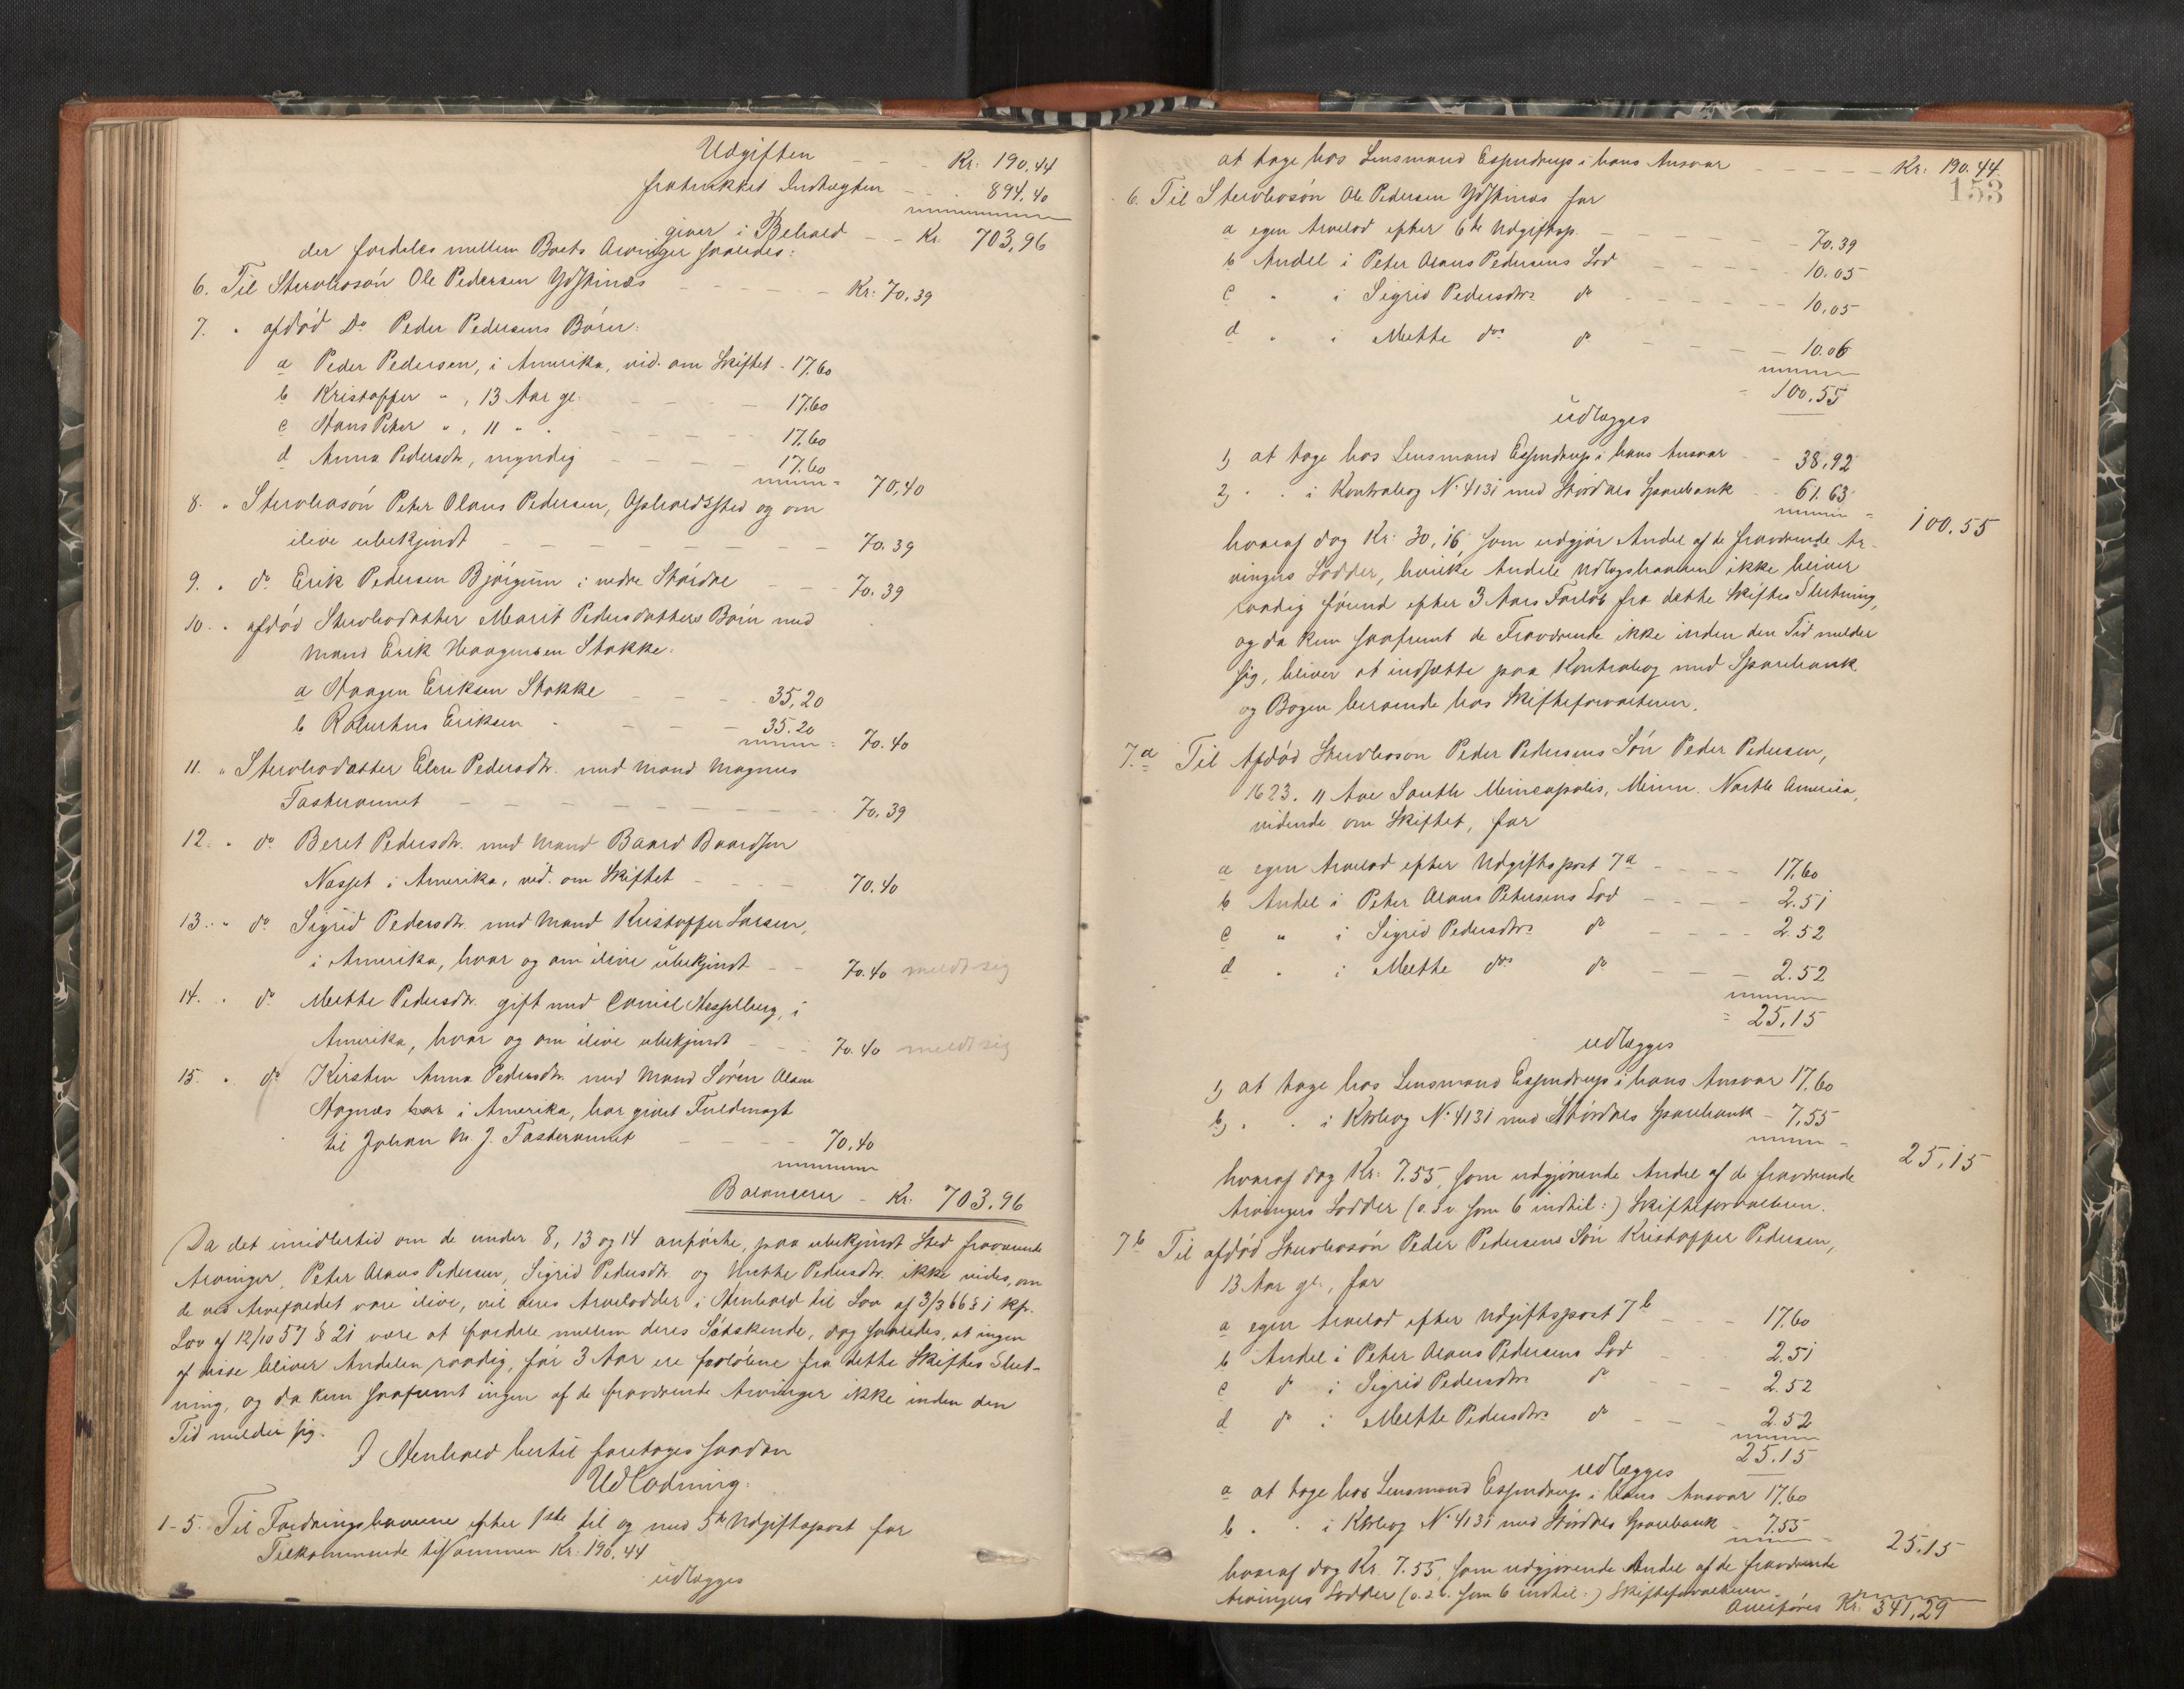 Udgiften - - - Kr. 190.44
fratrukket Indtægten - - - 894.40
giver i Behold - - Kr. 703,96
der fordeles mellem Boets Arvinger saaledes:
6. Til Stervbosøn Ole Pedersen Ydstines - - - - Kr: 70.39
7. " afdød Do Peder Pedersens Børn:
a Peder Pedersen, i Amerika, vid. om Skiftet - 17.60
b Kristoffer " , 13 Aar gl. - - - - 17.60
c Hans Peter " , 11 " " - - - - 17.60
d Anna Pedersdtr, myndig - - - - 17.60
= 70,40
8. " Stervbosøn Peter Olaus Pedersen, Opholdssted og om
ilive ubekjendt - - - - - - - - 70.39
9. " do Erik Pedersen Bjørgum i nedre Størdal - - - 70.39
10. " afdød Stervbodatter Marit Pedersdatters Børn med
Mand Erik Haagensen Stokke:
a Haagen Eriksen Stokke - - - 35,20
b Robertus Eriksen " - - - 35.20
= 70.40
11. " Stervbodatter Elen Pedersdtr. med Mand Magnus
- - - - - - - - 70,39
12. " do Beret Pedersdtr. med Mand Baard Baardsen
i Amerika, vid. om Skiftet - - - - 70.40
13. " do Sigrid Pedersdtr. med Mand Kristoffer Larsen,
i Amerika, hvor og om ilive ubekjendt - - 70.40 meldt sig
14. " do Mette Pedersdtr. gift med Hesselberg, i
Amerika, hvor og om ilive ubekjendt - - - 70.40 meldt sig
15. " do Kirsten Anna Pedersdtr. med Mand Søren Olsen
i Amerika, har givet Fuldmagt
til Johan M. J. - - - - 70,40
Balancerer - Kr. 703.96
Da det imidlertid om de under 8, 13 og 14 anførte, paa ubekjendt Sted fraværende
Arvinger, Peter Olaus Pedersen, Sigrid Pedersdtr. og Mette Pedersdtr. ikke vides, om
de ved Arvefaldet vare ilive, vil deres Arvelodder i Henhold til Lov af 3/3 66 § 1 kfr.
Lov af 12/10 57 § 21 være at fordele mellem deres Søskende, dog saaledes, at ingen
af disse bliver Andelen raadig, før 3 Aar ere forløbne fra dette Skiftes Slut-
ning, og da kun saafremt ingen af de fraværende Arvinger ikke inden den
Tid melder sig.
I Henhold hertil foretages saadan
Udlodning:
1-5. Til Fordringshaverne efter 1ste til og med 5te Udgiftspost for
Tilkommende tilsammen Kr. 190.44
udlægges
153
at tage hos Lensmand Espendrup i hans Ansvar - - - - - Kr. 190.44
6. Til Stervbosøn Ole Pedersen Ydstines for
a egen Arvelod efter 6te Udgiftsp. - - - - - 70.39
b Andel i Peter Olaus Pedersens Lod - - - - 10.05
c " i Sigrid Pedersdtrs do - - - - - 10.05
d " i Mette dos do - - - - 10.06
= 100.55
udlægges
1) at tage hos Lensmand Espendrup i hans Ansvar - - 38,92
2) " " i Kontrabog No 4131 med Størdals Sparebank - - 61.63
= 100.55
hvoraf dog Kr. 30,16, som udgjør Andel af de fraværende Ar-
vingers Lodder, hvilke Andele Udlægshaveren ikke bliver
raadig førend efter 3 Aars Forløb fra dette Skiftes Slutning,
og da kun saafremt de Fraværende ikke inden den Tid melder
sig, bliver at indsætte paa Kontrabog med Sparebank
og Bogen beroende hos Skifteforvalteren.
7.a Til Afdød Stervbosøn Peder Pedersens Søn Peder Pedersen,
1623. 11 Ave South Mineapolis, Minn. North America,
vidende om Skiftet, for
a egen Arvelod efter Udgiftspost 7a - - - - 17.60
b Andel i Peter Olaus Petersens Lod - - - - 2.51
c " i Sigrid Pedersdtrs do - - - - 2.52
d " i Mette dos do - - - 2.52
= 25,15
udlægges
1) at tage hos Lensmand Espendrup i hans Ansvar 17.60
b) " " i Ktrbog No 4131 med Størdals Sparebank - 7,55
= 25,15
hvoraf dog Kr. 7.55, som udgjørende Andel af de fraværende
Arvingers Lodder (o.s.v. som 6 indtil:) Skifteforvalteren.
7b Til afdød Stervbosøn Peder Pedersens Søn Kristoffer Pedersen,
13 Aar gl., for
a egen Arvelod efter Udgiftspost 7b - - - 17.60
b Andel i Peter Olaus Pedersens Lod - - 2.51
c do i Sigrid Pedersdtrs do - - - 2.52
d do i Mette Pedersdtrs do - - - 2.52
25.15
udlægges
a at tage hos Lensmand Espendrup i hans Ansvar 17.60
b " " i Ktrbog No 4131 med Størdals Sparebank - 7.55
= 25.15
hvoraf dog Kr. 7.55, som udgjørende Andel af de fraværende
Arvingers Lodder (o.s.v. som 6 indtil:) Skifteforvalteren.
Overføres Kr. 341,29